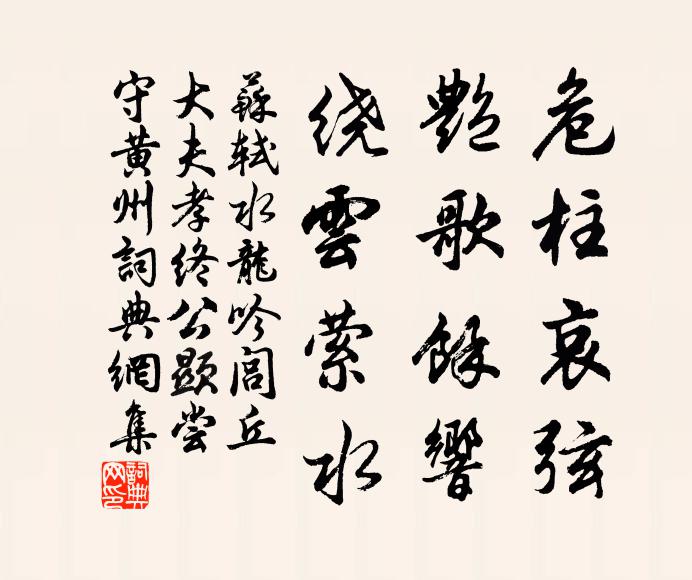 危柱哀弦
艷歌餘響
绕雲萦水
蘇軾水龍吟閭丘
大夫孝终公顯嘗
守黄州詞典網集
詞典網印